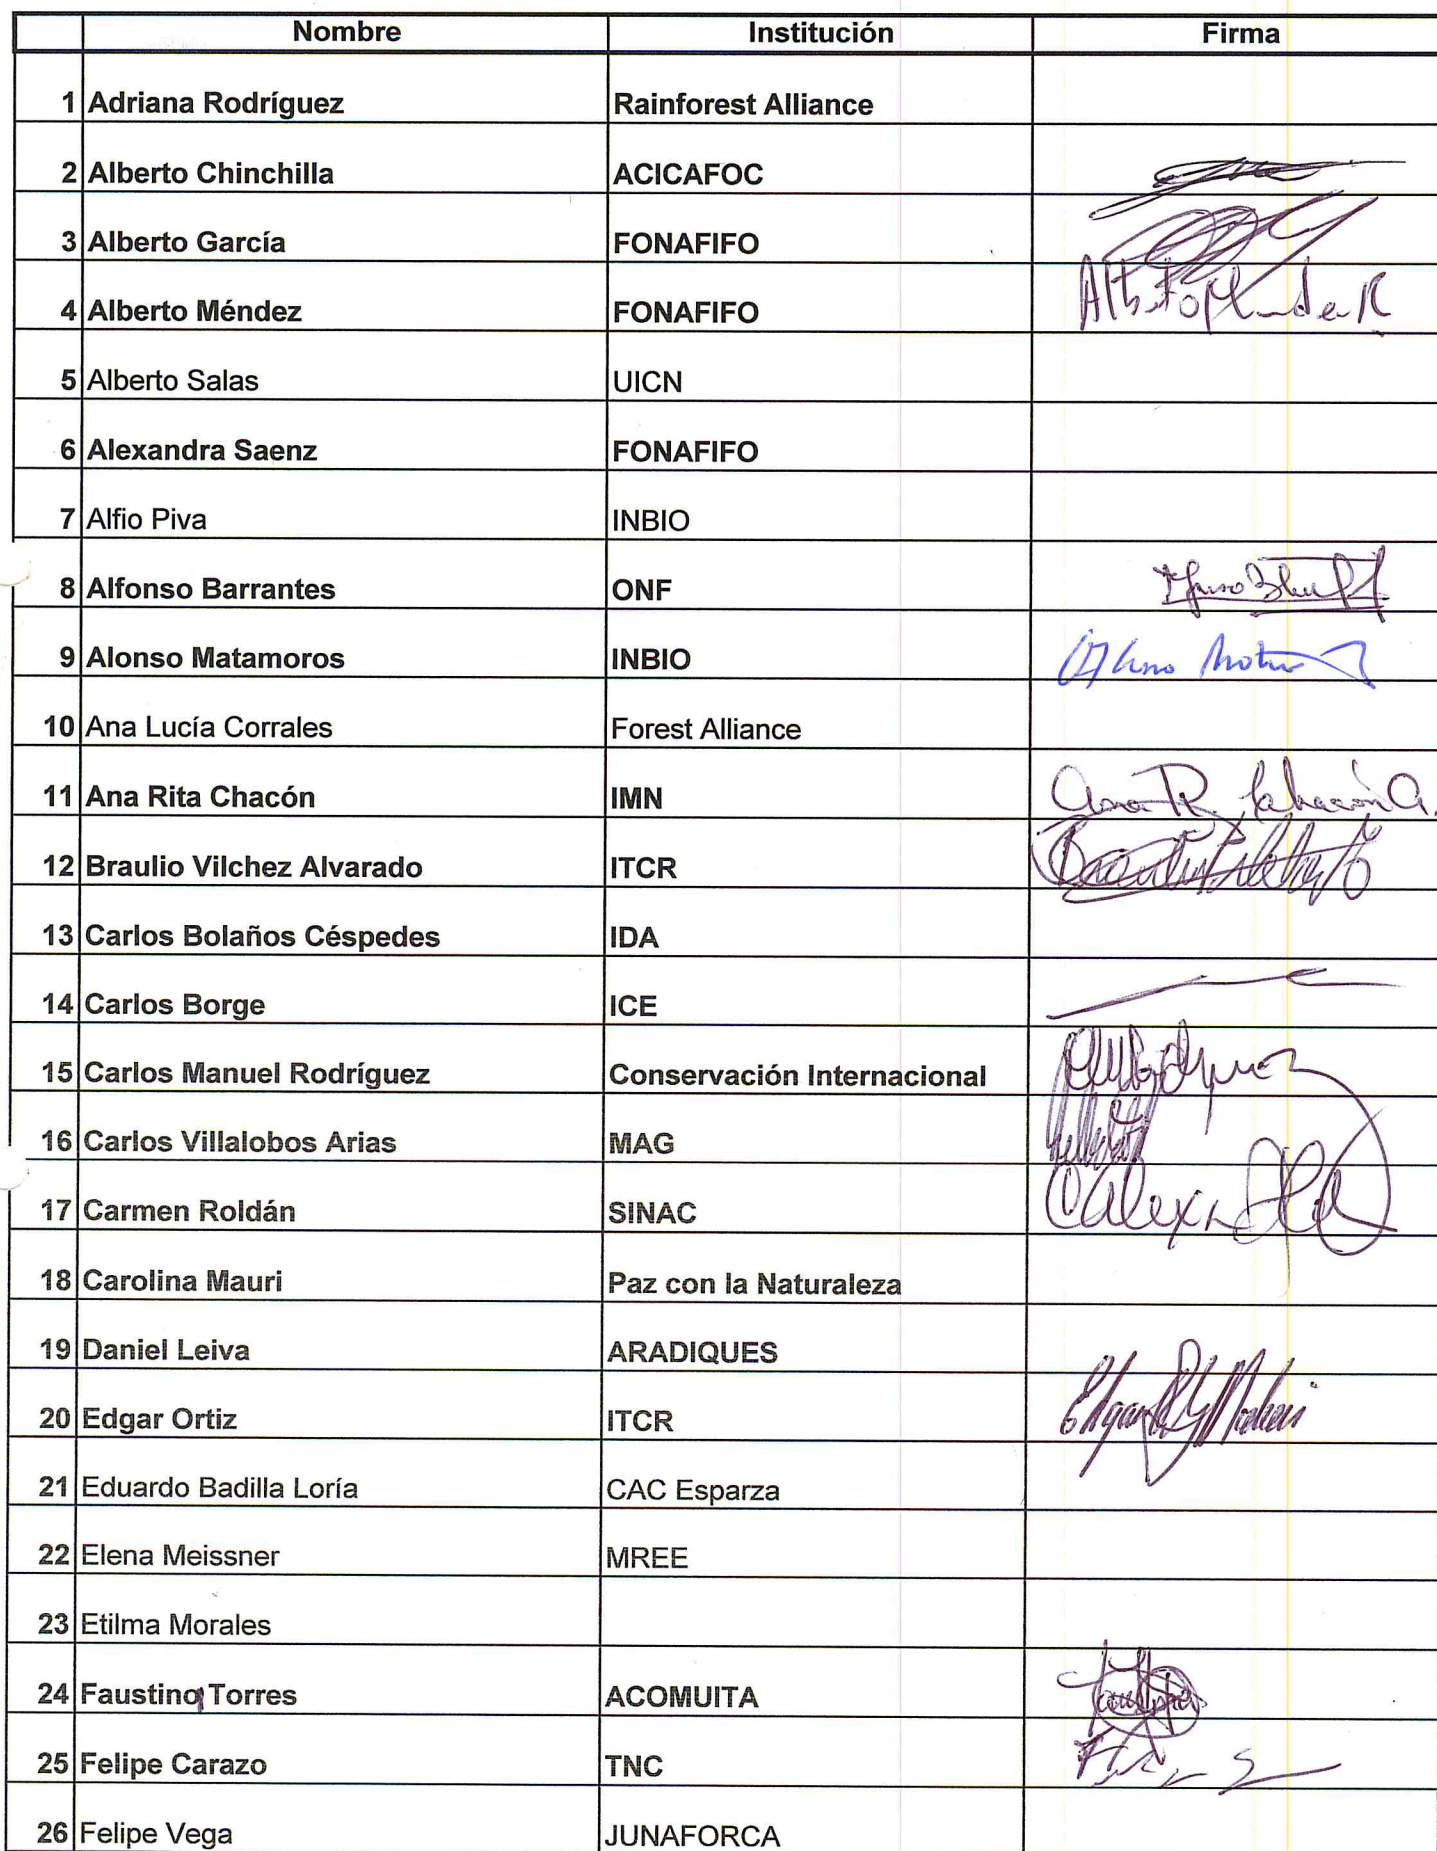 Nombre Institución Firma
1 Adriana Rodríguez Rainforest Alliance
2 Alberto Chinchilla ACICAFOC
3 Alberto García FONAFIFO
4 Alberto Méndez FONAFIFO
5 Alberto Salas UICN
6 Alexandra Saenz FONAFIFO
7 Alfio Piva INBIO
8 Alfonso Barrantes ONF
9 Alonso Matamoros INBIO
10 Ana Lucía Corrales Forest Alliance
11 Ana Rita Chacón IMN
12 Braulio Vilchez Alvarado ITCR
13 Carlos Bolaños Céspedes IDA
14 Carlos Borge ICE
15 Carlos Manuel Rodríguez Conservación Internacional
16 Carlos Villalobos Arias MAG
17 Carmen Roldán SINAC
18 Carolina Mauri Paz con la Naturaleza
19 Daniel Leiva ARADIQUES
20 Edgar Ortiz ITCR
21 Eduardo Badilla Loría CAC Esparza
22 Elena Meissner MREE
23 Etilma Morales
24 Faustino Torres ACOMUITA
25 Felipe Carazo TNC
26 Felipe Vega JUNAFORCA